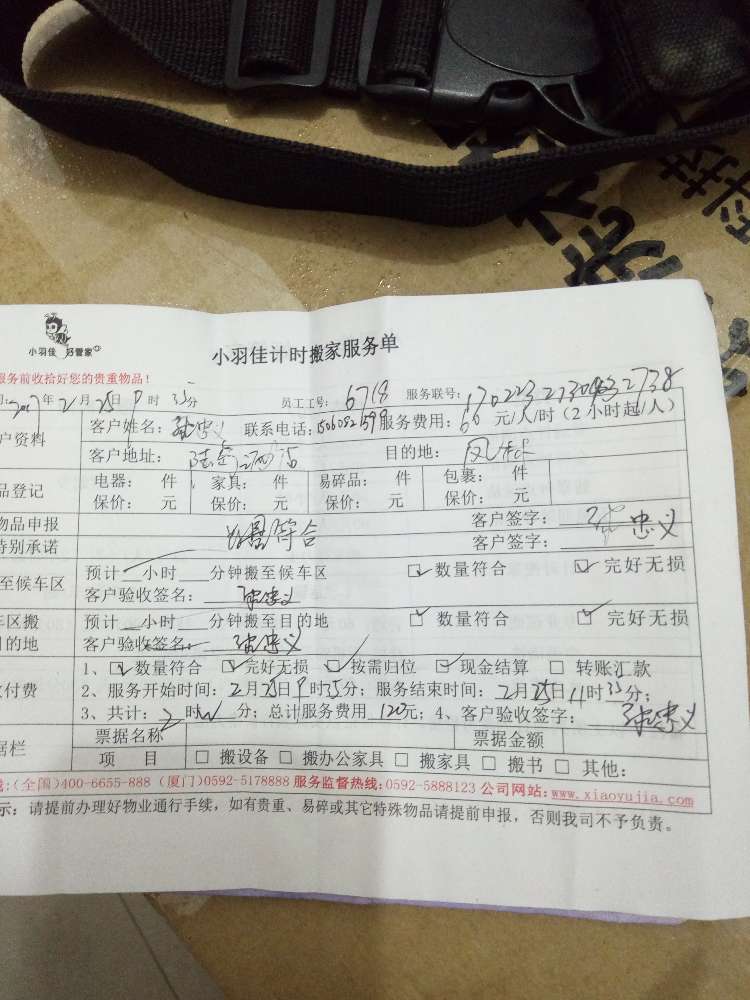 小羽佳 好管家
小羽佳计时搬家服务单
服务前收拾好您的贵重物品！
2017年2月25日9时35分 员工工号：6718 服务联号：
户资料 客户姓名：张忠义 联系电话： 服务费用：60元/人/时（2小时起/人）
客户地址： 目的地：
品登记 电器： 件 家具： 件 易碎品： 件 包裹： 件
保价： 元 保价： 元 保价： 元 保价： 元
物品申报 符合 客户签字：张忠义
特别承诺 客户签字：
至候车区 预计 小时 分钟搬至候车区 数量符合 完好无损
客户验收签名：张忠义
车区搬 预计 小时 分钟搬至目的地 数量符合 完好无损
目的地 客户验收签名：张忠义
付费 1、数量符合 完好无损 按需归位 现金结算 转账汇款
2、服务开始时间：2月25日9时35分；服务结束时间：2月25日11时35分；
3、共计：2时 分；总计服务费用120元；4、客户验收签字：张忠义
据栏 票据名称 票据金额
项 目 搬设备 搬办公家具 搬家具 搬书 其他：
线：(全国)400-6655-888 (厦门)0592-5178888 服务监督热线：0592-5888123 公司网站：www.xiaoyujia.com
示：请提前办理好物业通行手续，如有贵重、易碎或其它特殊物品请提前申报，否则我司不予负责。